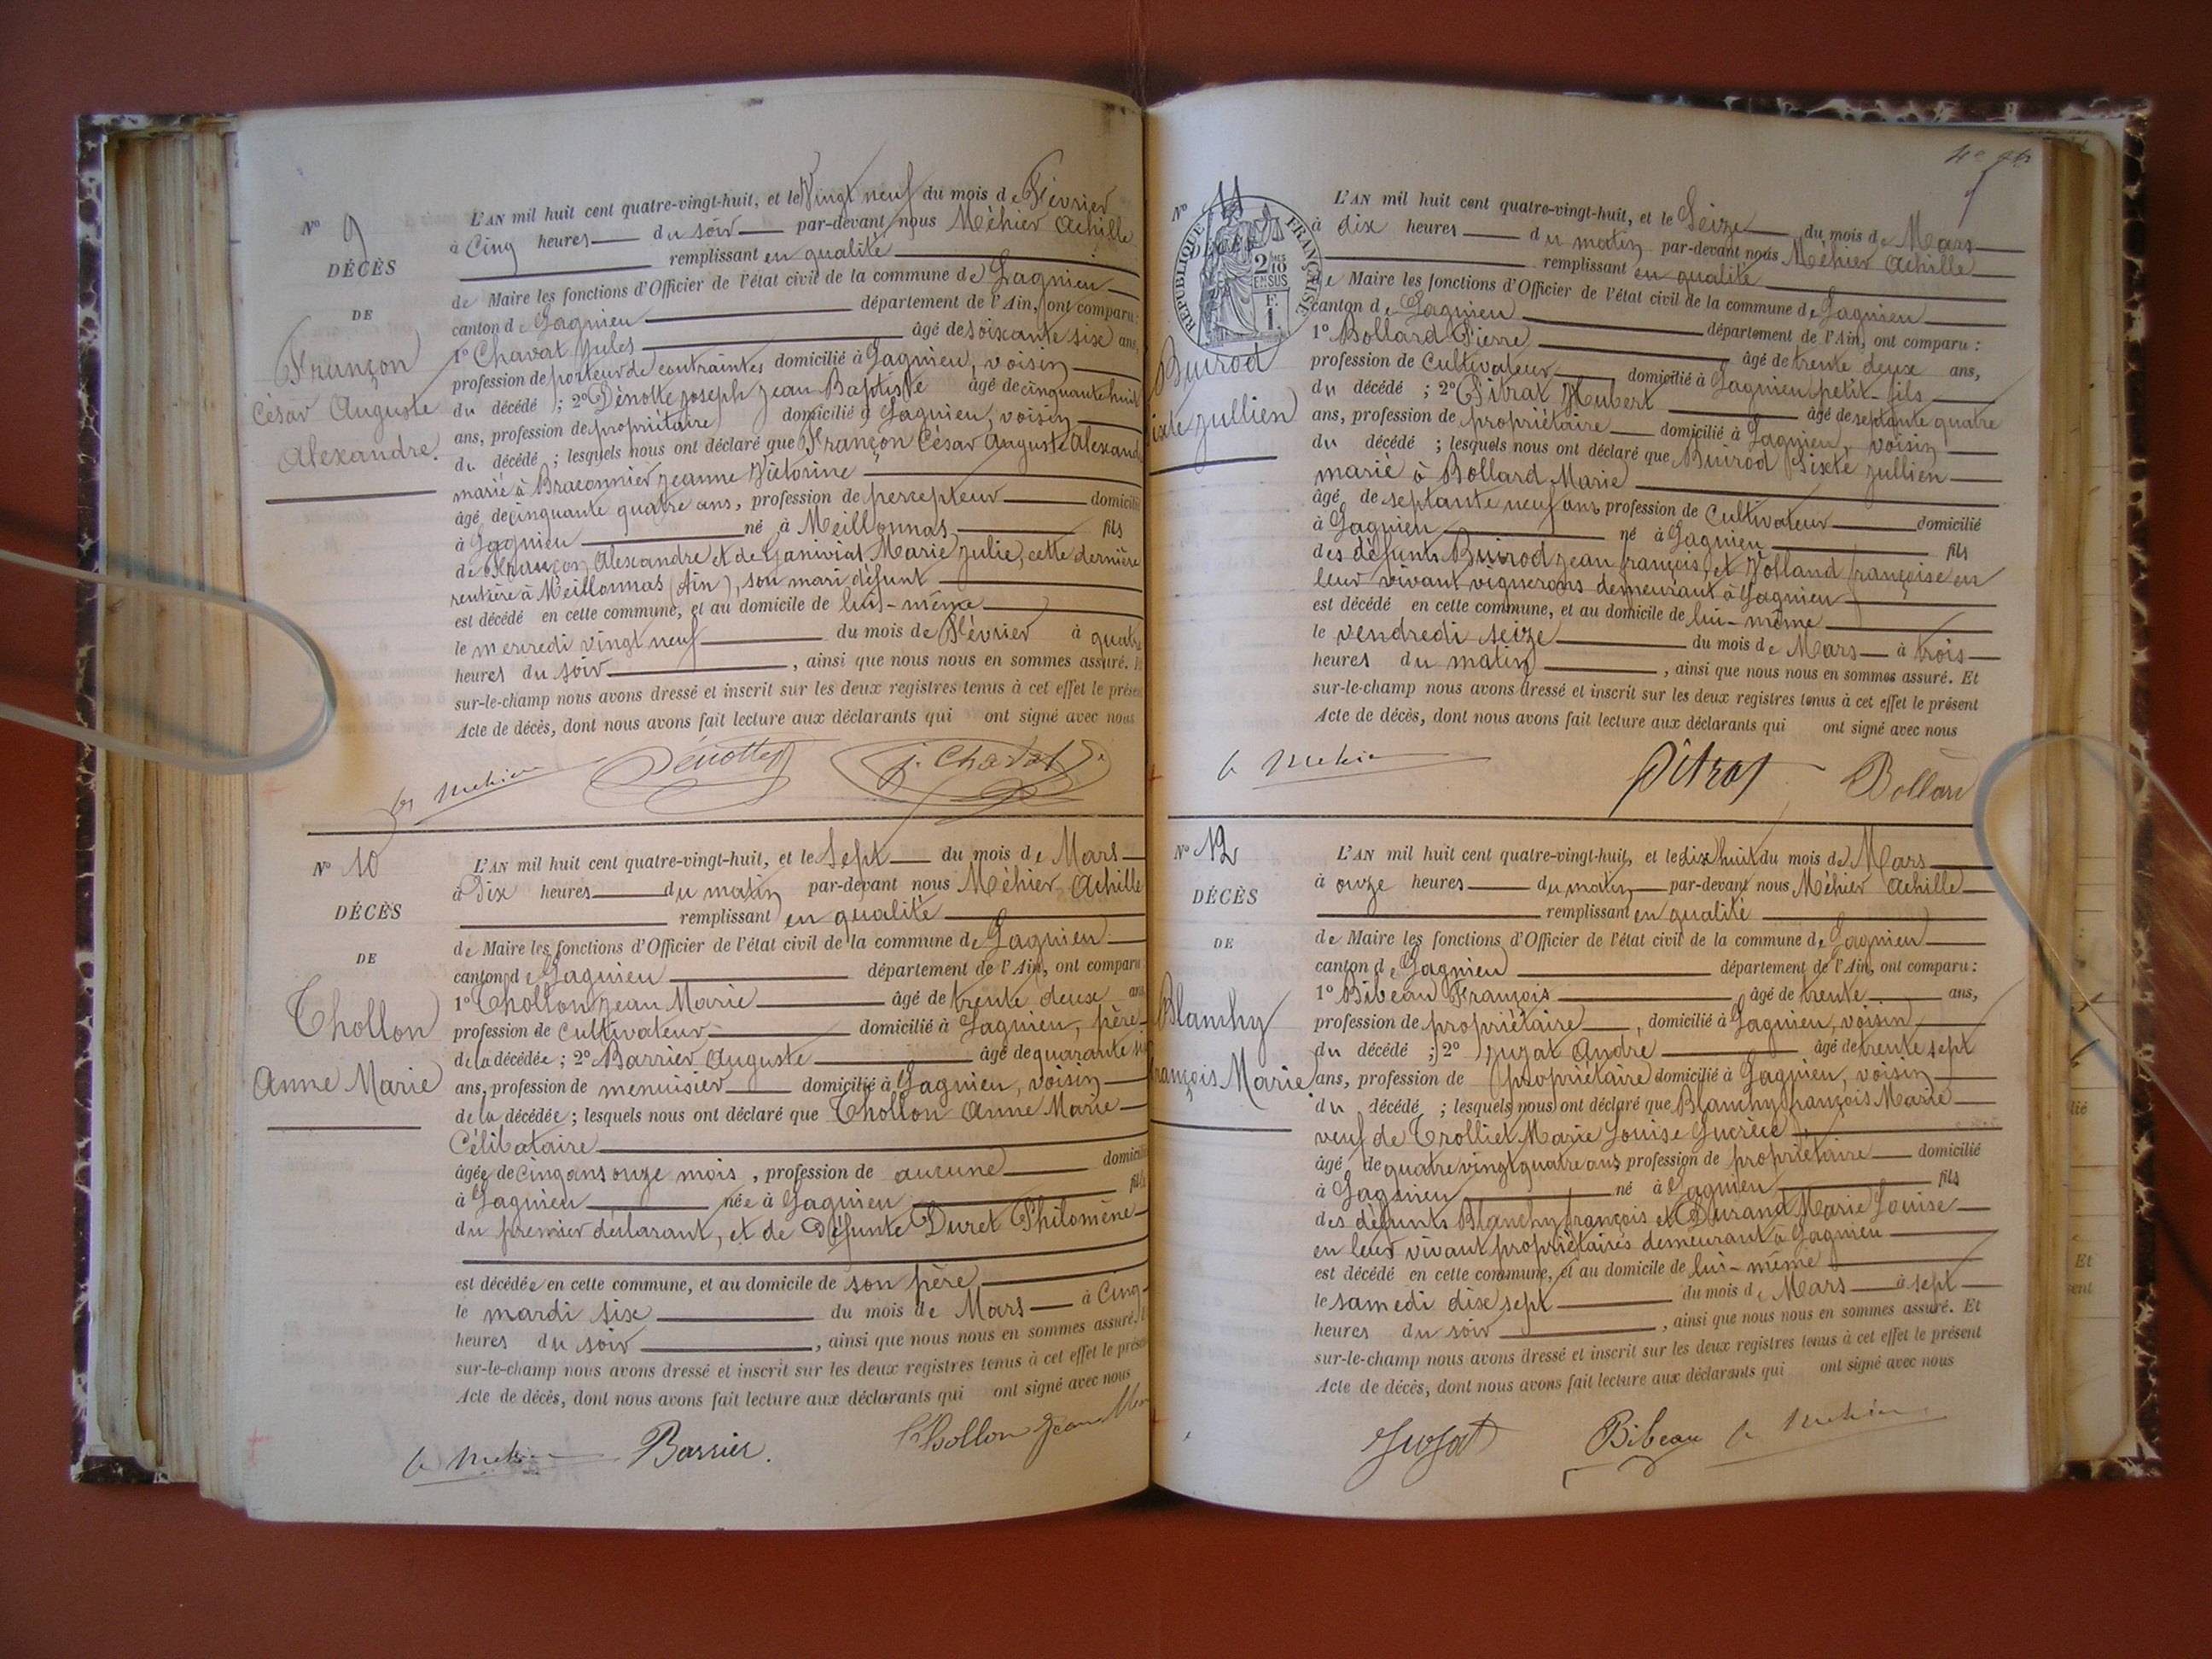 N° 9
DÉCÈS
DE
Françon
César Auguste
Alexandre
L'AN mil huit cent quatre-vingt-huit, et le Vingt neuf du mois de Février
à Cinq heures du soir par-devant nous Méhier Achille
remplissant en qualité
de Maire les fonctions d'Officier de l'état civil de la commune de Lagnieu
canton de Lagnieu département de l'Ain, ont comparu:
1° Chavat Jules âgé de soixante six ans,
profession de porteur de contraintes domicilié à Lagnieu, voisin
du décédé ; 2° Dénotte Joseph Jean Baptiste âgé de cinquante huit
ans, profession de propriétaire domicilié à Lagnieu, voisin
du décédé ; lesquels nous ont déclaré que Françon César Auguste Alexand
marié à Braconnier Jeanne Victorine
âgé de cinquante quatre ans, profession de percepteur domicilié
à Lagnieu né à Meillonnas fils
de Françon Alexandre et de Ganivial Marie Julie, cette dernière
rentière à Meillonnas (Ain), son mari défunt
est décédé en cette commune, et au domicile de lui-même
le mercredi vingt neuf du mois de Février à quatre
heures du soir , ainsi que nous nous en sommes assuré.
sur-le-champ nous avons dressé et inscrit sur les deux registres tenus à cet effet le présen
Acte de décès, dont nous avons fait lecture aux déclarants qui ont signé avec nous
Dénotte J. Chavat
N° 10
DÉCÈS
DE
Thollon
Anne Marie
L'AN mil huit cent quatre-vingt-huit, et le Sept du mois de Mars
à Dix heures du matin par-devant nous Méhier Achille
remplissant en qualité
de Maire les fonctions d'Officier de l'état civil de la commune de Lagnieu
canton de Lagnieu département de l'Ain, ont comparu
1° Thollon Jean Marie âgé de trente deux ans
profession de cultivateur domicilié à Lagnieu, père
de la décédée ; 2° Barrier Auguste âgé de quarante
ans, profession de menuisier domicilié à Lagnieu, voisin
de la décédée ; lesquels nous ont déclaré que Thollon Anne Marie
Célibataire
âgée de cinq ans onze mois , profession de aucune domicilié
à Lagnieu née à Lagnieu fille
du premier déclarant, et de Défunte Duret Philomène
est décédée en cette commune, et au domicile de son père
le mardi six du mois de Mars à Cinq
heures du soir , ainsi que nous nous en sommes assuré.
sur-le-champ nous avons dressé et inscrit sur les deux registres tenus à cet effet le prése
Acte de décès, dont nous avons fait lecture aux déclarants qui ont signé avec nous
Barrier. Thollon Jean Mar
N° 11
DÉCÈS
RÉPUBLIQUE FRANÇAISE
2/10 EN SUS
F. 1.
Buirod
ixte Jullien
L'AN mil huit cent quatre-vingt-huit, et le Seize du mois de Mars
à dix heures du matin par-devant nous Méhier Achille
remplissant en qualité
de Maire les fonctions d'Officier de l'état civil de la commune de Lagnieu
canton de Lagnieu département de l'Ain, ont comparu :
1° Bollard Pierre âgé de trente deux ans,
profession de Cultivateur domicilié à Lagnieu petit-fils
du décédé ; 2° Pitrat Hubert âgé de septante quatre
ans, profession de propriétaire domicilié à Lagnieu, voisin
du décédé ; lesquels nous ont déclaré que Buirod Sixte Jullien
marié à Bollard Marie
âgé de septante neuf ans profession de Cultivateur domicilié
à Lagnieu né à Lagnieu fils
des défunts Buirod Jean François, et Volland Françoise en
leur vivant vignerons demeurant à Lagnieu
est décédé en cette commune, et au domicile de lui-même
le vendredi seize du mois de Mars à trois
heures du matin , ainsi que nous nous en sommes assuré. Et
sur-le-champ nous avons dressé et inscrit sur les deux registres tenus à cet effet le présent
Acte de décès, dont nous avons fait lecture aux déclarants qui ont signé avec nous
Pitrat Bollard
N° 12
DÉCÈS
DE
Blanchy
rançois Marie
L'AN mil huit cent quatre-vingt-huit, et le dix huit du mois de Mars
à onze heures du matin par-devant nous Méhier Achille
remplissant en qualité
de Maire les fonctions d'Officier de l'état civil de la commune de Lagnieu
canton de Lagnieu département de l'Ain, ont comparu :
1° Bibeau François âgé de trente ans,
profession de propriétaire , domicilié à Lagnieu, voisin
du décédé ; 2° Juzat André âgé de trente sept
ans, profession de propriétaire domicilié à Lagnieu, voisin
du décédé ; lesquels nous ont déclaré que Blanchy François Marie
veuf de Trolliet Marie Louise Lucrèce
âgé de quatre vingt quatre ans profession de propriétaire domicilié
à Lagnieu né à Lagnieu fils
des défunts Blanchy François et Durand Marie Louise
en leur vivant propriétaires demeurant à Lagnieu
est décédé en cette commune, et au domicile de lui-même
le samedi dix sept du mois de Mars à sept
heures du soir , ainsi que nous nous en sommes assuré. Et
sur-le-champ nous avons dressé et inscrit sur les deux registres tenus à cet effet le présent
Acte de décès, dont nous avons fait lecture aux déclarants qui ont signé avec nous
Juzat Bibeau